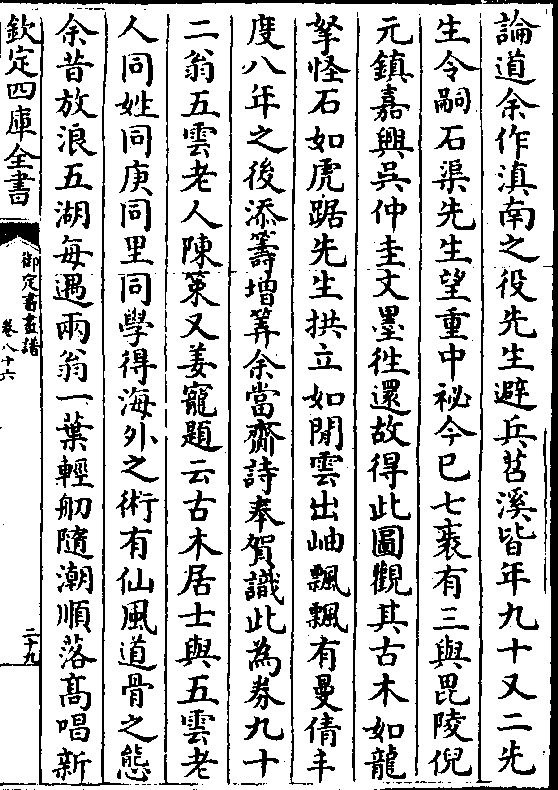 論道余作滇南之役先生避兵苕溪皆年九十又二先
生令嗣石渠先生望重中祕今已七袠有三與毘陵倪
元鎮嘉興吳仲圭文墨徃還故得此圖觀其古木如龍
拏怪石如虎踞先生拱立如閒雲出岫飄飄有曼倩丰
度八年之後添籌增筭余當齋詩奉賀識此為券九十
二翁五雲老人陳䇿又姜寵題云古木居士與五雲老
人同姓同庚同里同學得海外之術有仙風道骨之態
余昔放浪五湖每遇兩翁一葉輕舠隨潮順落髙唱新
欽定四庫全書
御定書畫譜
卷八十六
二十九